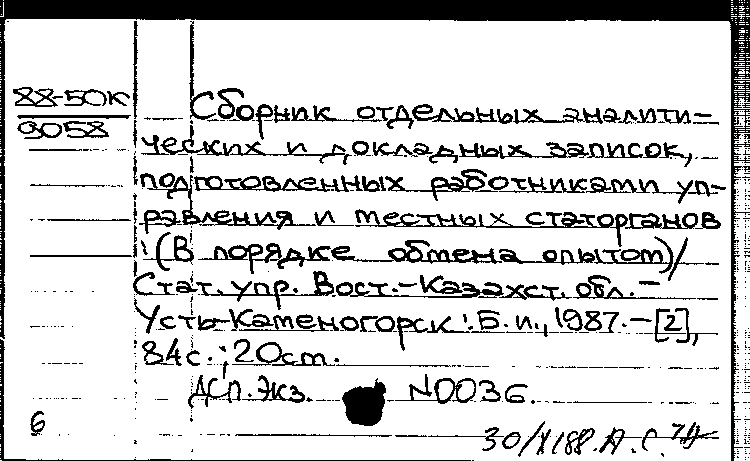 88-50К
9058
Сборник отдельных аналити-
ческих и докладных записок,
подготовленных работниками уп-
равления и местных статорганов
:(В порядке обмена опытом)/
Стат. упр. Вост.-Казахст. обл.-
Усть-Каменогорск:Б.и.,1987.-[2],
84с.;20см.
ДСП. Экз. N0036.
6
30/XI88г. А.С.